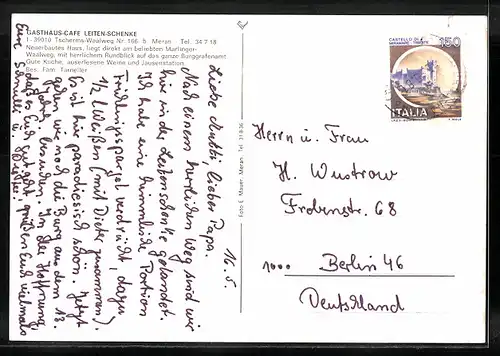 GASTHAUS-CAFE LEITEN-SCHENKE
I - 39010 Tscherms-Waalweg Nr. 166 b Meran - Tel. 34 7 18
Neuerbautes Haus, liegt direkt am beliebten Marlinger-
Waalweg, mit herrlichem Rundblick auf das ganze Burggrafenamt
Gute Küche, auserlesene Weine und Jausenstation
Bes. Fam. Tanneller
16. 5.
Liebe Mutti, lieber Papa.
Nach einem herrlichen Weg sind wir
hier in der Leitenschenke gelandet.
Ich habe eine himmlische Portion
Frühlingsspargel verdrückt, dazu
1/2 Weißen (mit Dieter zusammen).
Es ist hier paradiesisch schön. Jetzt
gehen wir noch die Burg aus dem 13.
In der Hoffnung
daß es Euch gut geht, grüßen Euch vielmals
Eure
CASTELLO DI
MIRAMARE - TRIESTE
150
ITALIA
Herrn u. Frau
H. Wustrow
Frobenstr. 68
1000 Berlin 46
Deutschland